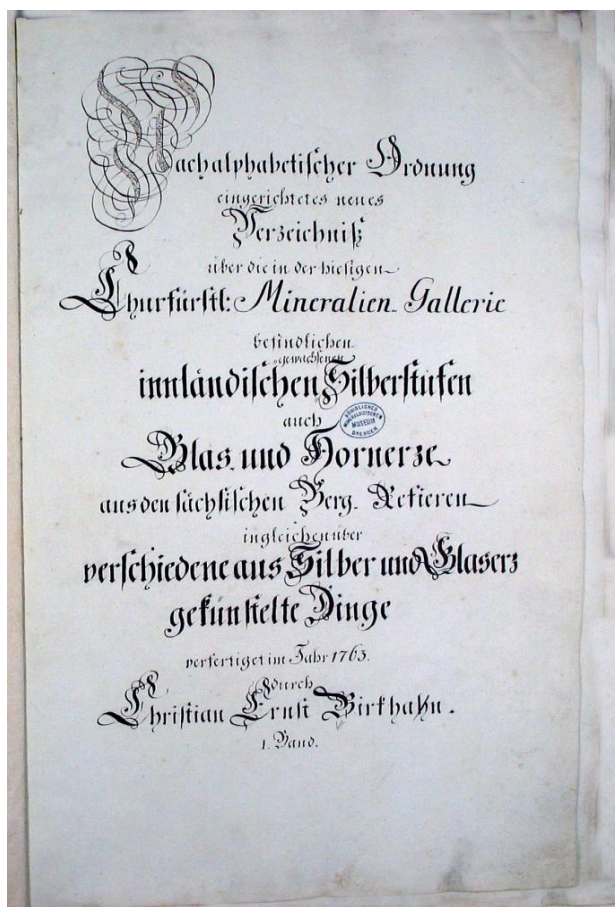 Nach alphabetischer Ordnung
eingerichtetes neues
Verzeichniß
über die in der hiesigen
Churfürstl: Mineralien-Gallerie
befindlichen
gewachsenen
innländischen Silberstufen
auch
Glas- und Hornerze
aus den sächsischen Berg-Refieren
ingleichen über
verschiedene aus Silber und Glaserz
gekünstelte Dinge
verfertiget im Jahr 1763.
durch
Christian Ernst Birkhahn.
1. Band.
KÖNIGLICHES
MINERALOGISCHES
MUSEUM
DRESDEN